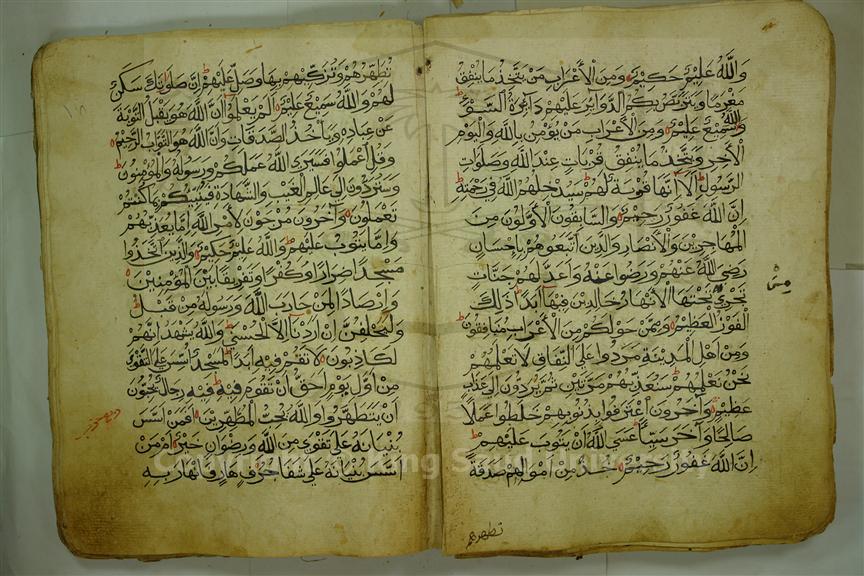 والله عليم حكيم ومن الأعراب من يتخذ ما ينفق
مغرما ويتربص بكم الدوائر عليهم دائرة السوء
والله سميع عليم ومن الأعراب من يؤمن بالله واليوم
الآخر ويتخذ ما ينفق قربات عند الله وصلوات
الرسول ألا إنها قربة لهم سيدخلهم الله في رحمته
إن الله غفور رحيم والسابقون الأولون من
المهاجرين والأنصار والذين اتبعوهم بإحسان
رضي الله عنهم ورضوا عنه وأعد لهم جنات
تجري تحتها الأنهار خالدين فيها أبدا ذلك
الفوز العظيم وممن حولكم من الأعراب منافقون
ومن أهل المدينة مردوا على النفاق لا تعلمهم
نحن نعلمهم سنعذبهم مرتين ثم يردون إلى عذاب
عظيم وآخرون اعترفوا بذنوبهم خلطوا عملا
صالحا وآخر سيئا عسى الله أن يتوب عليهم
إن الله غفور رحيم خذ من أموالهم صدقة
تطهرهم
تطهرهم وتزكيهم بها وصل عليهم إن صلاتك سكن
لهم والله سميع عليم ألم يعلموا أن الله هو يقبل التوبة
عن عباده ويأخذ الصدقات وأن الله هو التواب الرحيم
وقل اعملوا فسيرى الله عملكم ورسوله والمؤمنون
وستردون إلى عالم الغيب والشهادة فينبئكم بما كنتم
تعملون وآخرون مرجون لأمر الله إما يعذبهم
وإما يتوب عليهم والله عليم حكيم والذين اتخذوا
مسجدا ضرارا وكفرا وتفريقا بين المؤمنين
وإرصادا لمن حارب الله ورسوله من قبل
وليحلفن إن أردنا إلا الحسنى والله يشهد إنهم
لكاذبون لا تقم فيه أبدا لمسجد أسس على التقوى
من أول يوم أحق أن تقوم فيه فيه رجال يحبون
أن يتطهروا والله يحب المطهرين أفمن أسس
بنيانه على تقوى من الله ورضوان خير أم من
أسس بنيانه على شفا جرف هار فانهار به